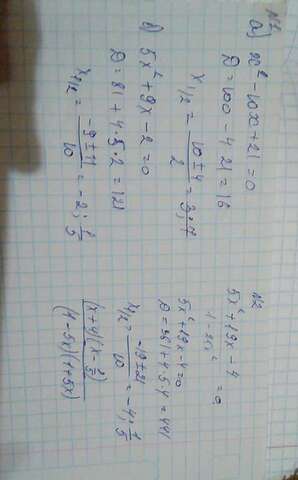 №1
а) x² - 10x + 21 = 0
D = 100 - 4·21 = 16
x₁,₂ = (10 ± 4)/2 = 3; 7
б) 5x² + 9x - 2 = 0
D = 81 + 4·5·2 = 121
x₁,₂ = (-9 ± 11)/10 = -2; 1/5
№2
(5x² + 19x - 4)/(1 - 25x²) = 0
5x² + 19x - 4 = 0
D = 361 + 4·5·4 = 441
x₁,₂ = (-19 ± 21)/10 = -4; 1/5
(x + 4)(x - 1/5)/((1 - 5x)(1 + 5x))